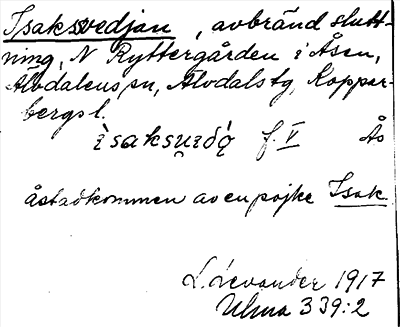 Isaksvedjan, avbränd slutt-
ning, N Ryttergården i Åsen,
Älvdalens sn, Älvdals tg, Koppar-
bergs l.
ìsaksu̯ıðǫ f. V Ås
åstadkommen av en pojke Isak
L. Levander 1917
Ulma 339:2